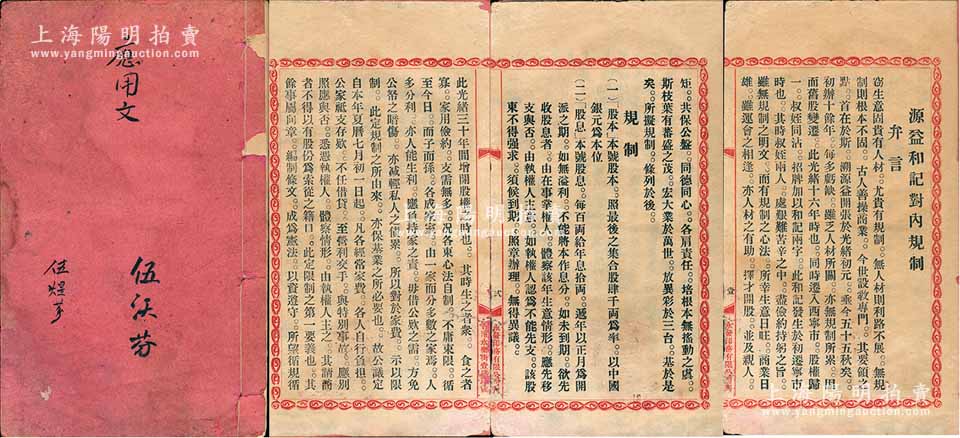 上海陽明拍賣
www.yangmingauction.com
應用文
上海陽明拍賣
www.yangmingauction.com
源益和記對內規制
弁言
竊生意固貴有人材。尤貴有規制。無人材則利路不展。無規
制則根本不固。古人善操商業。今世設教專門。其要領之
點。首在於斯。溯源益開張於光緒初元。垂今五十五秋矣。
初辦十餘年。每多虧缺。雖乏人材所關。亦無規制所累。因
而舊股變遷。此光緒十六年時也。同時遷入西寧市。股權歸
一。叔姪同沾。招牌加以和記兩字。此和記發生於初遷寧市
時也。其時叔姪兩人。處艱難苦辛之中。盡儉約持躬之旨。
雖無規制之明文。而有規制之心法。所幸生意日旺。商業日
雄。雖運會之相逢。亦人材之有助。擇才開股。並及親人。
壹
此光緒三十年間增開股權之時也。其時生之者衆。食之者
寡。家用儉約。支需無多。況各東心法自制。不庸東限。循
至今日。而子而孫。各成家室。由一家而分多數之家專。人
多分利。亦人能生利。應負持家之責。毋借公款之需。方免
公帑之暗傷。亦減輕私人之債累。所以對於家費。示以限
制。此定規制之所由來。亦保基業之所必要也。故公議定
自本年夏曆七月初一日起。凡各經常家費。各人自行負担。
公家祗支存欵。不任借貸。至舊利交手。與特別事故。應別
照應與否。悉憑執權人。體察情形。由執權人主之。其請商
者不得以有股份為索從之藉口。此定限制之第一要義也。其
餘事屬向章。編制條文。成為憲法。以資遵守。所望循規
貳
矩。共保公盤。同德同心。各肩責任。培根本無搖動之虞。
斯枝葉有蕃盛之茂。宏大業於萬世。放異彩於三台。基於是
矣。所擬規制。條列於後。
規制
(一)「股本」本號股本。照最後之集合股肆千両為率。以中國
銀元為本位
(二)「股息」本號股息。每百両給年息拾両。遞年以正月為開
派之期。如無溢利。不能將本作息分。如未到期。欲先
收股息者。由在事掌權人。體察該年生意情形。應先移
支與否。由執權人主之。如執權人認為不能先支。該股
東不得强求。須候到期。照章辦理。無得異議。